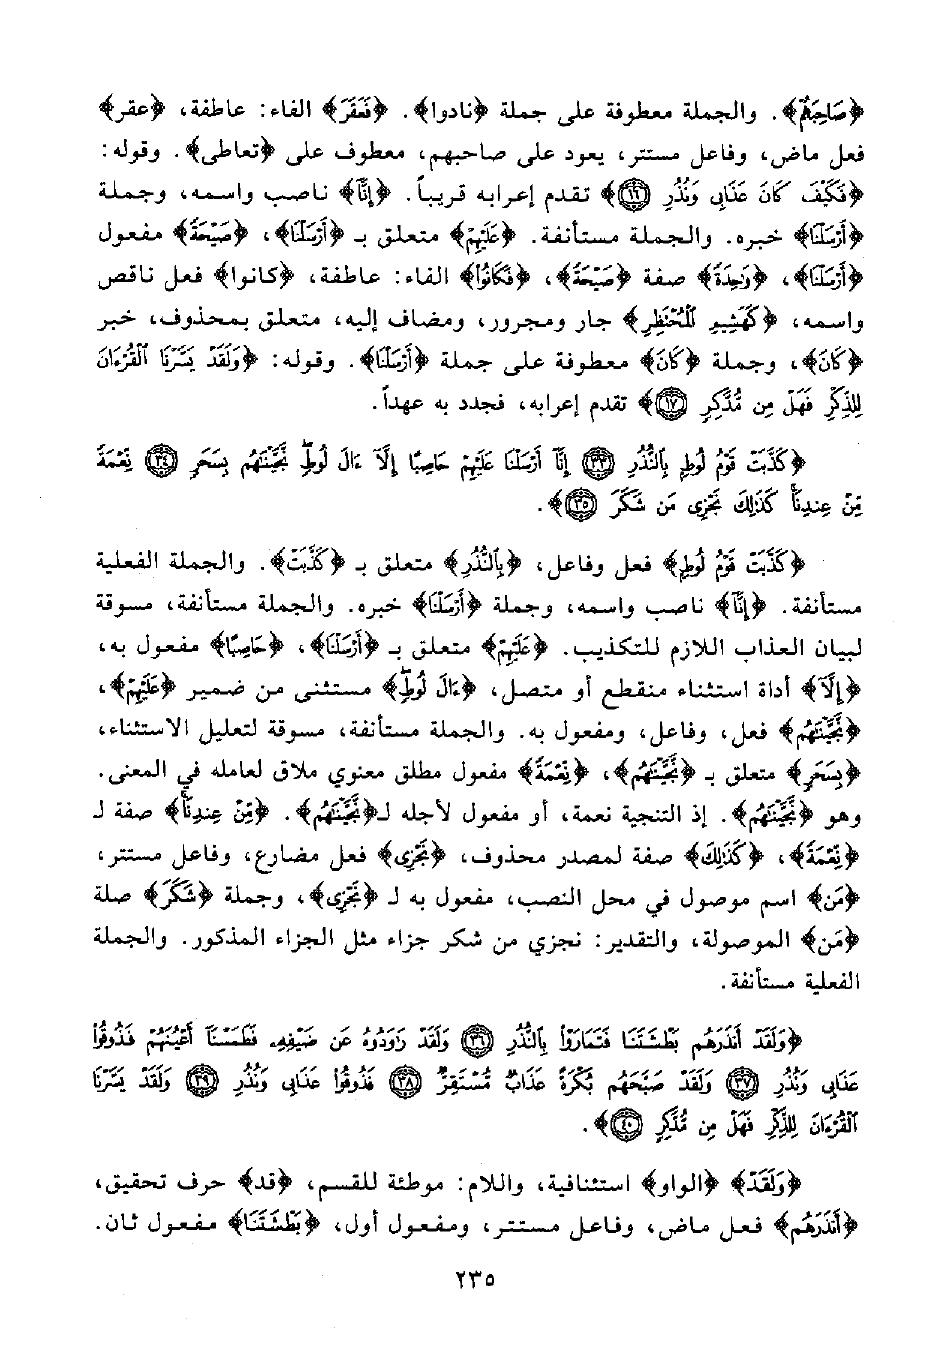 ﴿صَاحِبَهُمْ﴾. والجملة معطوفة على جملة ﴿نادوا﴾. ﴿فَعَقَرَ﴾ الفاء: عاطفة، ﴿عقر﴾
فعل ماض، وفاعل مستتر، يعود على صاحبهم، معطوف على ﴿تعاطى﴾. وقوله:
﴿فَكَيْفَ كَانَ عَذَابِي وَنُذُرِ ۝١٦﴾ تقدم إعرابه قريباً. ﴿إِنَّا﴾ ناصب واسمه، وجملة
﴿أَرْسَلْنَا﴾ خبره. والجملة مستأنفة. ﴿عَلَيْهِمْ﴾ متعلق بـ ﴿أَرْسَلْنَا﴾، ﴿صَيْحَةً﴾ مفعول
﴿أَرْسَلْنَا﴾، ﴿وَاحِدَةً﴾ صفة ﴿صَيْحَةً﴾، ﴿فَكَانُوا﴾ الفاء: عاطفة، ﴿كانوا﴾ فعل ناقص
واسمه، ﴿كَهَشِيمِ الْمُحْتَظِرِ﴾ جار ومجرور، ومضاف إليه، متعلق بمحذوف، خبر
﴿كَانَ﴾، وجملة ﴿كَانَ﴾ معطوفة على جملة ﴿أَرْسَلْنَا﴾. وقوله: ﴿وَلَقَدْ يَسَّرْنَا الْقُرْءَانَ
لِلذِّكْرِ فَهَلْ مِن مُّدَّكِرٍ ۝١٧﴾ تقدم إعرابه، فجدد به عهداً.
﴿كَذَّبَتْ قَوْمُ لُوطٍ بِالنُّذُرِ ۝٣٣ إِنَّا أَرْسَلْنَا عَلَيْهِمْ حَاصِبًا إِلَّا ءَالَ لُوطٍ نَّجَّيْنَاهُم بِسَحَرٍ ۝٣٤ نِّعْمَةً
مِّنْ عِندِنَا كَذَٰلِكَ نَجْزِي مَن شَكَرَ ۝٣٥﴾.
﴿كَذَّبَتْ قَوْمُ لُوطٍ﴾ فعل وفاعل، ﴿بِالنُّذُرِ﴾ متعلق بـ ﴿كَذَّبَتْ﴾. والجملة الفعلية
مستأنفة. ﴿إِنَّا﴾ ناصب واسمه، وجملة ﴿أَرْسَلْنَا﴾ خبره. والجملة مستأنفة، مسوقة
لبيان العذاب اللازم للتكذيب. ﴿عَلَيْهِمْ﴾ متعلق بـ ﴿أَرْسَلْنَا﴾، ﴿حَاصِبًا﴾ مفعول به،
﴿إِلَّا﴾ أداة استثناء منقطع أو متصل، ﴿ءَالَ لُوطٍ﴾ مستثنى من ضمير ﴿عَلَيْهِمْ﴾،
﴿نَّجَّيْنَاهُم﴾ فعل، وفاعل، ومفعول به. والجملة مستأنفة، مسوقة لتعليل الاستثناء،
﴿بِسَحَرٍ﴾ متعلق بـ ﴿نَّجَّيْنَاهُم﴾، ﴿نِّعْمَةً﴾ مفعول مطلق معنوي ملاق لعامله في المعنى.
وهو ﴿نَّجَّيْنَاهُم﴾. إذ التنجية نعمة، أو مفعول لأجله لـ﴿نَّجَّيْنَاهُم﴾. ﴿مِّنْ عِندِنَا﴾ صفة لـ
﴿نِّعْمَةً﴾، ﴿كَذَٰلِكَ﴾ صفة لمصدر محذوف، ﴿نَجْزِي﴾ فعل مضارع، وفاعل مستتر،
﴿مَن﴾ اسم موصول في محل النصب، مفعول به لـ ﴿نَجْزِي﴾، وجملة ﴿شَكَرَ﴾ صلة
﴿مَن﴾ الموصولة، والتقدير: نجزي من شكر جزاء مثل الجزاء المذكور. والجملة
الفعلية مستأنفة.
﴿وَلَقَدْ أَنذَرَهُم بَطْشَتَنَا فَتَمَارَوْا بِالنُّذُرِ ۝٣٦ وَلَقَدْ رَاوَدُوهُ عَن ضَيْفِهِ فَطَمَسْنَا أَعْيُنَهُمْ فَذُوقُوا
عَذَابِي وَنُذُرِ ۝٣٧ وَلَقَدْ صَبَّحَهُم بُكْرَةً عَذَابٌ مُّسْتَقِرٌّ ۝٣٨ فَذُوقُوا عَذَابِي وَنُذُرِ ۝٣٩ وَلَقَدْ يَسَّرْنَا
الْقُرْءَانَ لِلذِّكْرِ فَهَلْ مِن مُّدَّكِرٍ ۝٤٠﴾.
﴿وَلَقَدْ﴾ ﴿الواو﴾ استئنافية، واللام: موطئة للقسم، ﴿قد﴾ حرف تحقيق،
﴿أَنذَرَهُم﴾ فعل ماض، وفاعل مستتر، ومفعول أول، ﴿بَطْشَتَنَا﴾ مفعول ثان.
٢٣٥